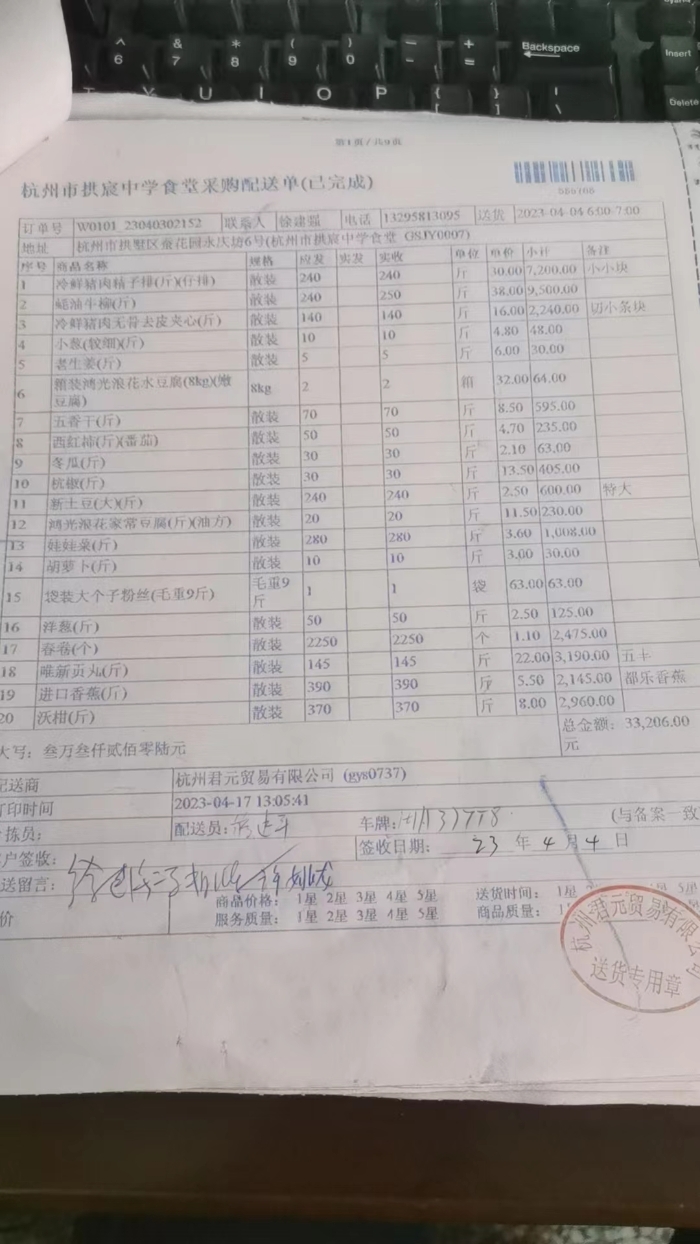 第1页/共9页
杭州市拱宸中学食堂采购配送单(已完成)
订单号 W0101_23040302152 联系人 徐建强 电话 13295813095 送货 2023-04-04 6:00-7:00
地址 杭州市拱墅区蚕花园永庆坊6号(杭州市拱宸中学食堂 GSJY0007)
序号 商品名称 规格 应发 实发 实收 单位 单价 小计 备注
1 冷鲜猪肉精子排(斤)(仔排) 散装 240 240 斤 30.00 7,200.00 小小块
2 蚝油牛柳(斤) 散装 240 250 斤 38.00 9,500.00
3 冷鲜猪肉无骨去皮夹心(斤) 散装 140 140 斤 16.00 2,240.00 切小条块
4 小葱(较细)(斤) 散装 10 10 斤 4.80 48.00
5 老生姜(斤) 散装 5 5 斤 6.00 30.00
6 箱装鸿光浪花水豆腐(8kg)(嫩豆腐) 8kg 2 2 箱 32.00 64.00
7 五香干(斤) 散装 70 70 斤 8.50 595.00
8 西红柿(斤)(番茄) 散装 50 50 斤 4.70 235.00
9 冬瓜(斤) 散装 30 30 斤 2.10 63.00
10 杭椒(斤) 散装 30 30 斤 13.50 405.00
11 新土豆(大)(斤) 散装 240 240 斤 2.50 600.00 特大
12 鸿光浪花家常豆腐(斤)(油方) 散装 20 20 斤 11.50 230.00
13 娃娃菜(斤) 散装 280 280 斤 3.60 1,008.00
14 胡萝卜(斤) 散装 10 10 斤 3.00 30.00
15 袋装大个子粉丝(毛重9斤) 毛重9斤 1 1 袋 63.00 63.00
16 洋葱(斤) 散装 50 50 斤 2.50 125.00
17 春卷(个) 散装 2250 2250 个 1.10 2,475.00
18 唯新贡丸(斤) 散装 145 145 斤 22.00 3,190.00 五丰
19 进口香蕉(斤) 散装 390 390 斤 5.50 2,145.00 都乐香蕉
20 沃柑(斤) 散装 370 370 斤 8.00 2,960.00
总金额: 33,206.00元
大写: 叁万叁仟贰佰零陆元
配送商 杭州君元贸易有限公司 (gys0737)
打印时间 2023-04-17 13:05:41
拣员: 配送员: 车牌: (与备案一致)
户签收: 签收日期: 23 年 4 月 4 日
送留言:
价 商品价格: 1星 2星 3星 4星 5星 送货时间: 1星 5星
服务质量: 1星 2星 3星 4星 5星 商品质量:
杭州君元贸易有限公司
送货专用章
^ 6 & 7 * 8 ( 9 ) 0 - + = Backspace Insert
T Y U I O P { [ } ] Delete